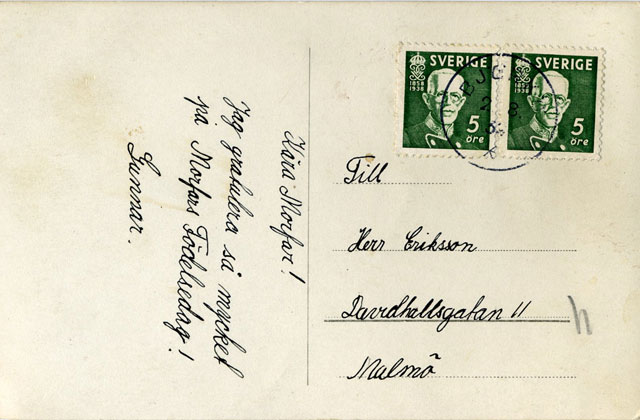 Kära Morfar!
Jag gratulera så mycket
på Morfars Födelsedag!
Gunnar.
SVERIGE
1858
1938
5
öre
SVERIGE
1858
1938
5
öre
Till
Herr Eriksson
Davidhallsgatan 11
Malmö